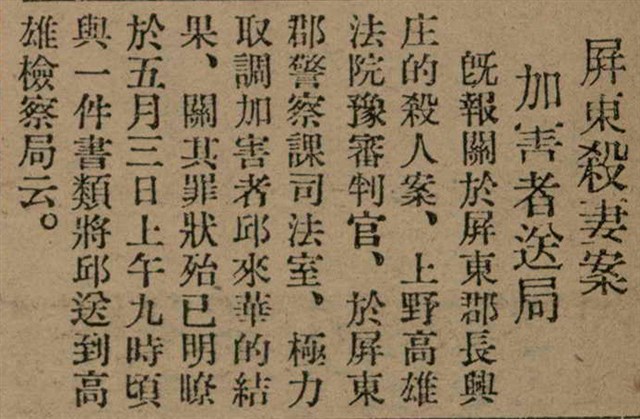 屏東殺妻案
加害者送局
既報關於屏東郡長興
庄的殺人案、上野高雄
法院豫審判官、於屏東
郡警察課司法室、極力
取調加害者邱來華的結
果、關其罪狀殆已明瞭
於五月三日上午九時頃
與一件書類將邱送到高
雄檢察局云。